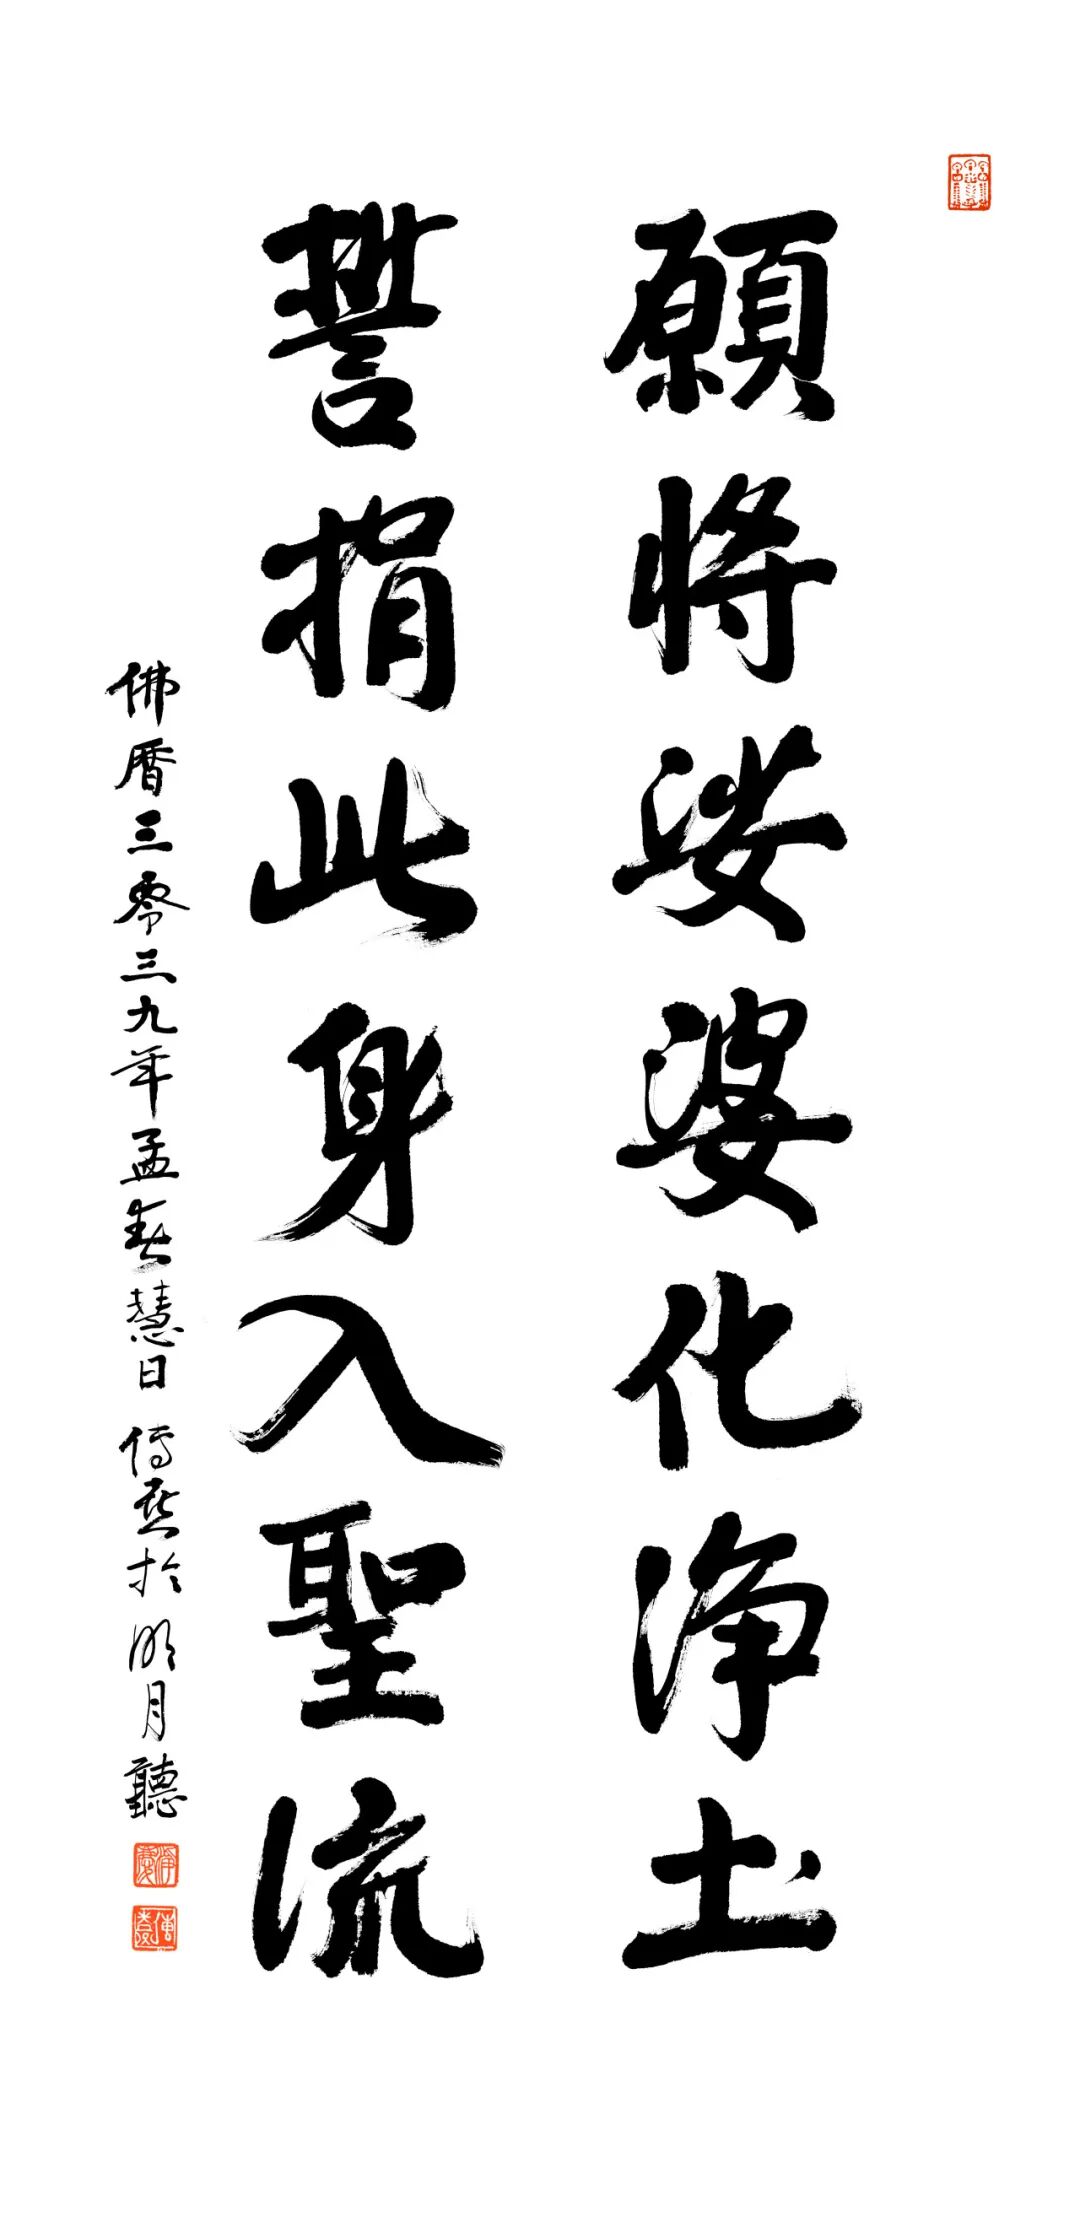 願將娑婆化净土
誓捐此身入聖流
佛曆三零三九年孟春慧日傳熹於明月聽